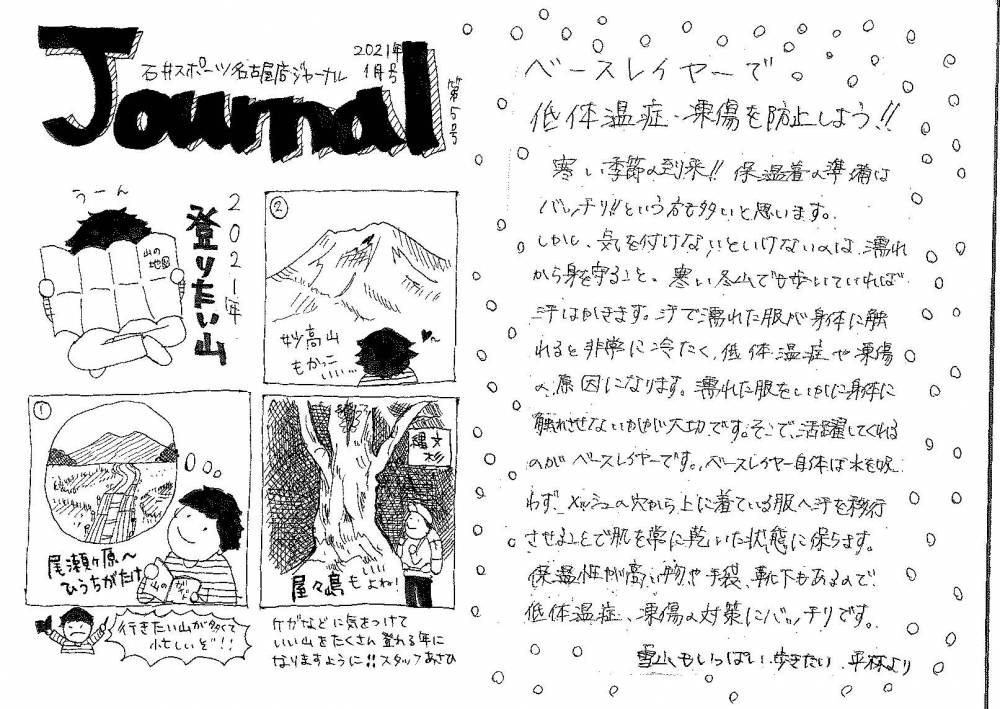 2021年
1月号
石井スポーツ名古屋店ジャーナル
Journal
第5号
うーん
山の地図
2021年
登りたい山
②
妙高山
もかっこ
いい…
①
尾瀬ヶ原〜
ひうちがたけ
山の
縄文
杉
屋久島もよね!
行きたい山が多くて
忙しいぞ!!
ケガなどに気をつけて
いい山をたくさん登れる年に
なりますように!! スタッフあさひ
ベースレイヤーで
低体温症、凍傷を防止しよう!!
寒い季節の到来!! 保温着の準備は
バッチリ!!という方も多いと思います。
しかし、気を付けないといけないのは、濡れ
から身を守ること。寒い冬山でも歩いていれば
汗はかきます。汗で濡れた服が身体に触
れると非常に冷たく、低体温症や凍傷
の原因になります。濡れた服をいかに身体に
触れさせないかが大切です。そこで、活躍してくれる
のがベースレイヤーです。ベースレイヤー自体は水を吸
わず、メッシュの穴から上に着ている服へ汗を移行
させることで肌を常に乾いた状態に保ちます。
保温性が高い物や手袋、靴下もあるので、
低体温症、凍傷の対策にバッチリです。
雪山もいっぱい歩きたい 平林より